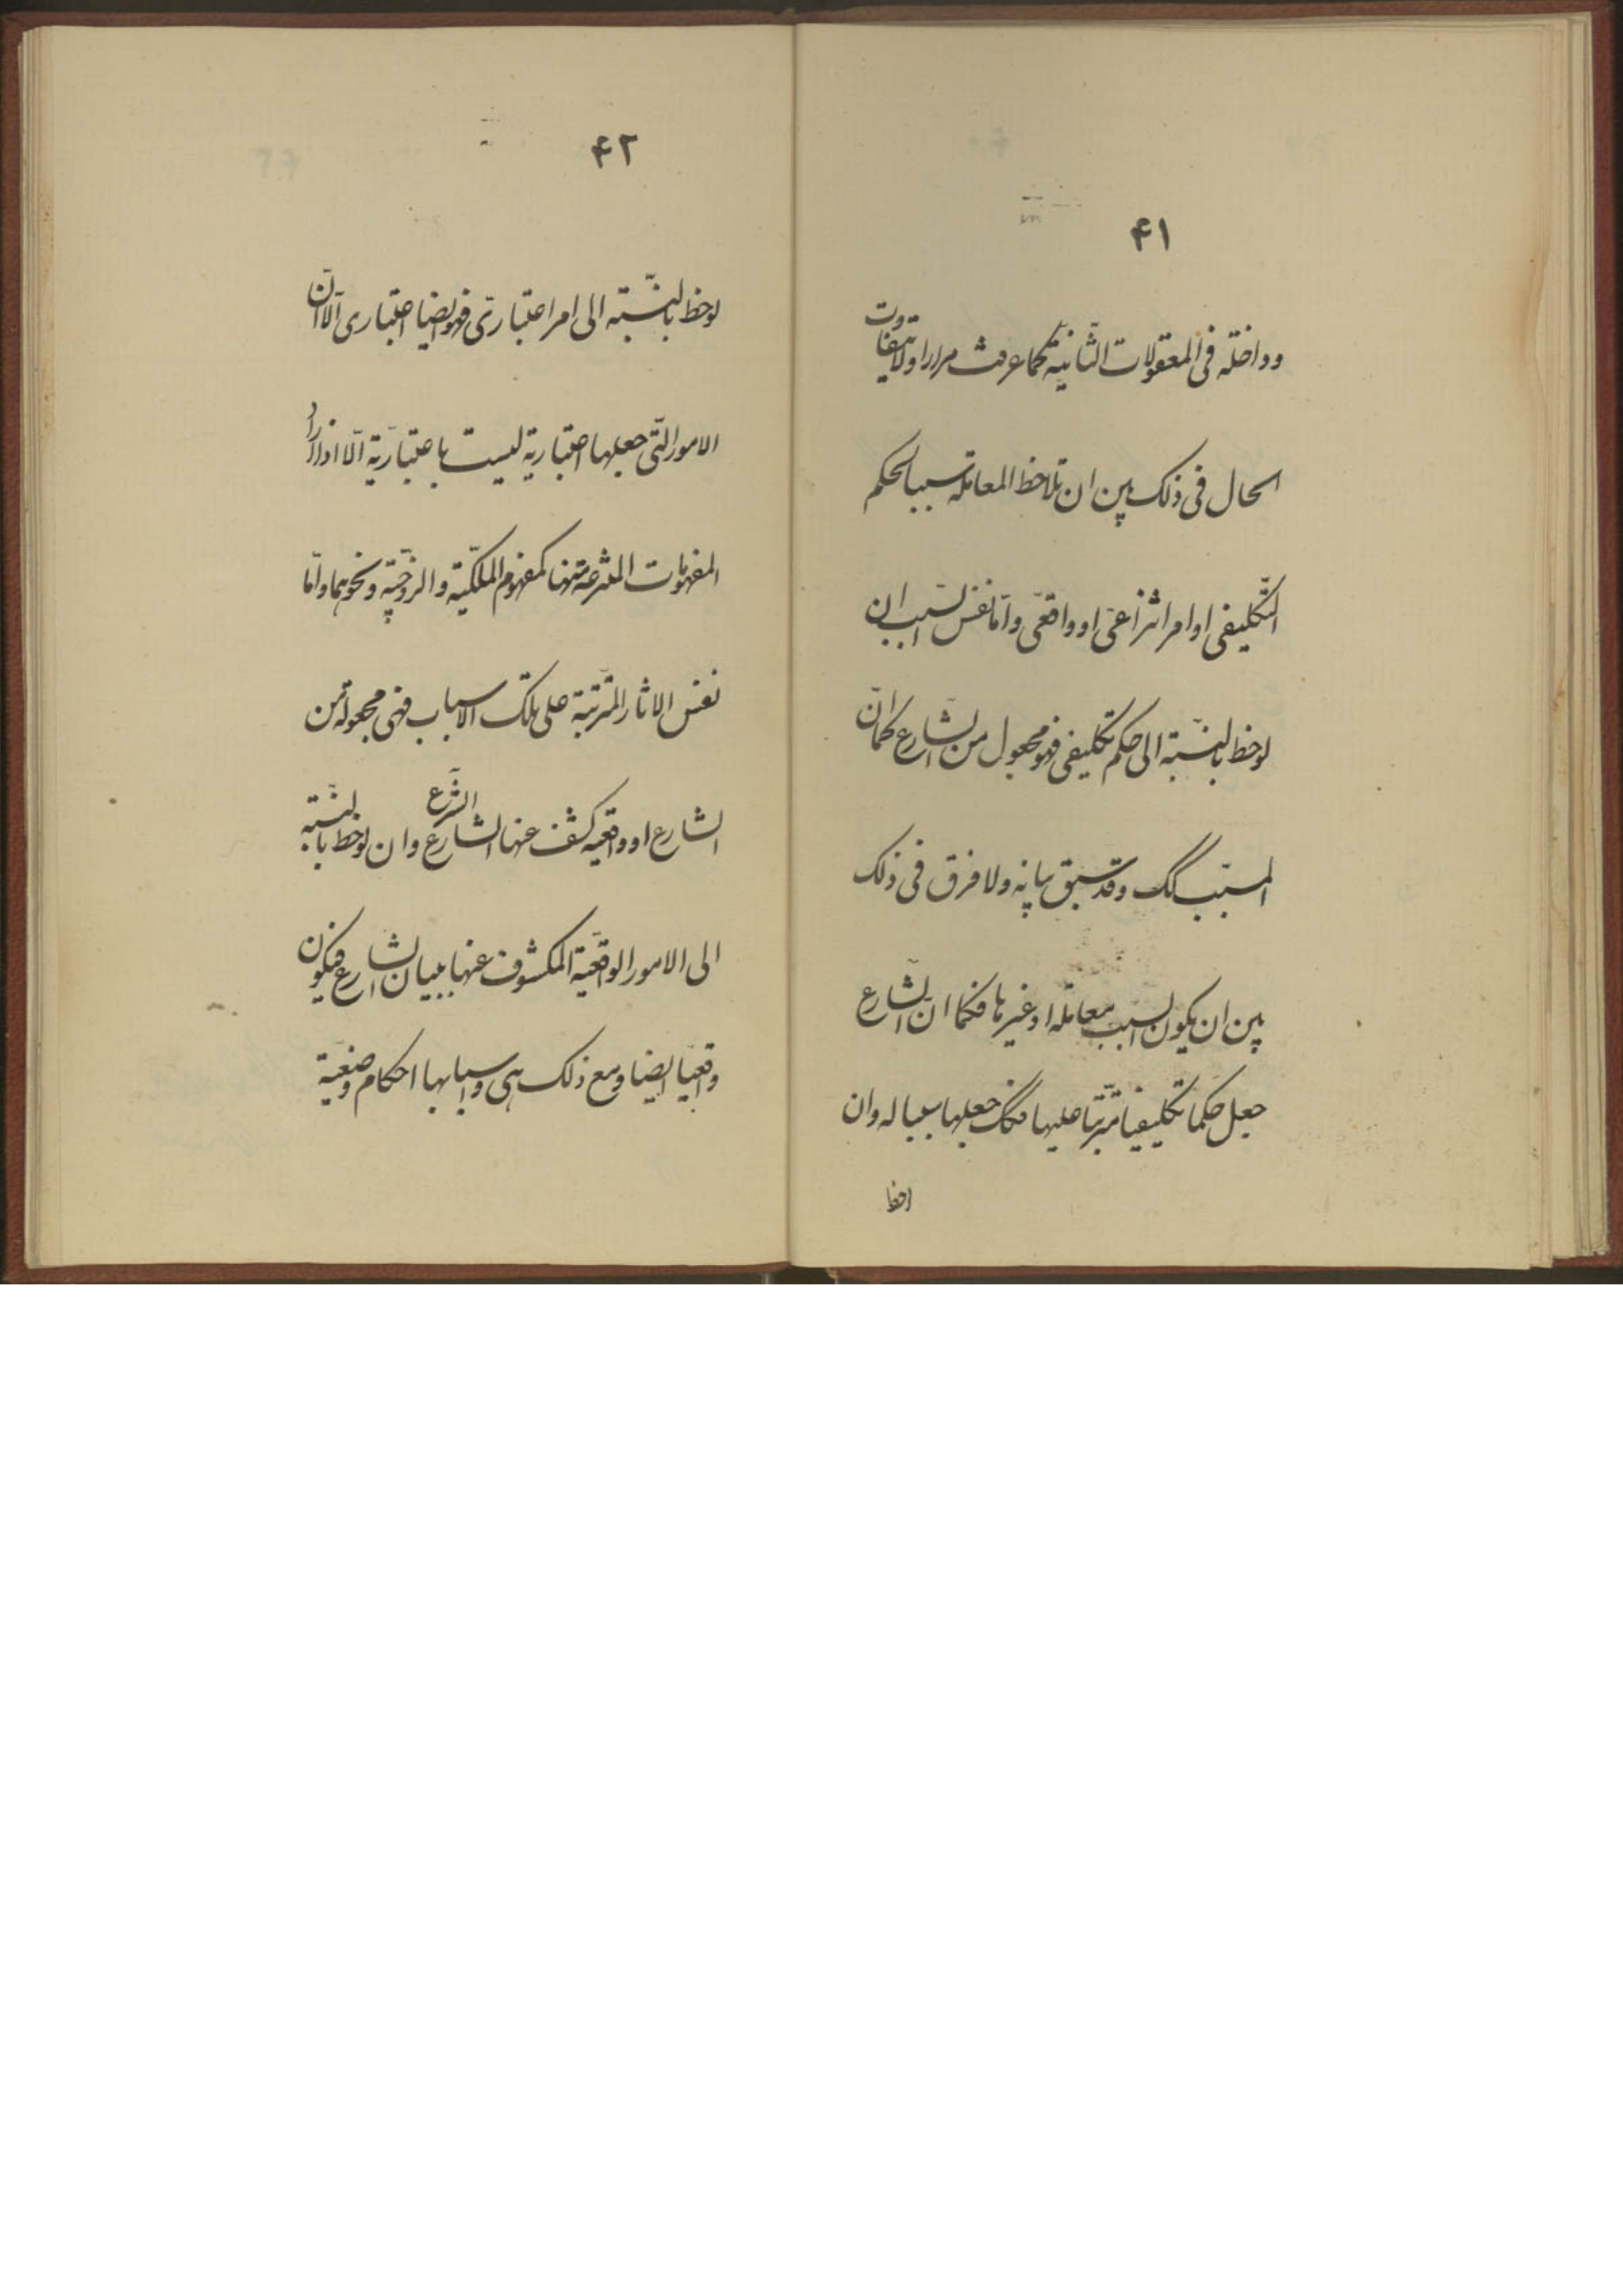 ۴۱
وداخلة فی المعقولات الثّانیّة کما عرفت مرارا ولا یتفاوت
الحال فی ذلک بین ان تلاحظ المعاملة سببا لحکم
التّکلیفی او امر انتزاعیّ او واقعیّ وامّا نفس السّبب ان
لوحظ بالنّسبة الی حکم تکلیفی فهو مجعول من الشّارع کما انّ
المسبّب کک وقد سبق بیانه ولا فرق فی ذلک
بین ان یکون السّبب معاملة او غیرها فکما انّ الشّارع
جعل حکما تکلیفیا مترتّبا علیها فکک جعلها سببا له وان
۴۲
لوحظ بالنّسبة الی امر اعتباریّ فهو ایضا اعتباری الّا انّ
الامور الّتی جعلها اعتباریة لیست باعتباریّة الّا اذا اراد
المفهومات المنتزعة منها کمفهوم الملکیّة والزّوجیّة ونحوهما وامّا
نفس الاثار المترتّبة علی تلک الاسباب فهی مجعولة من
الشارع او واقعیه کشف عنها الشارع الشّرع وان لوحظ بالنّسبة
الی الامور الواقعیّة المکشوف عنها ببیان الشّارع فیکون
واقعیّا ایضا ومع ذلک هی واسبابها احکام وضعیّة